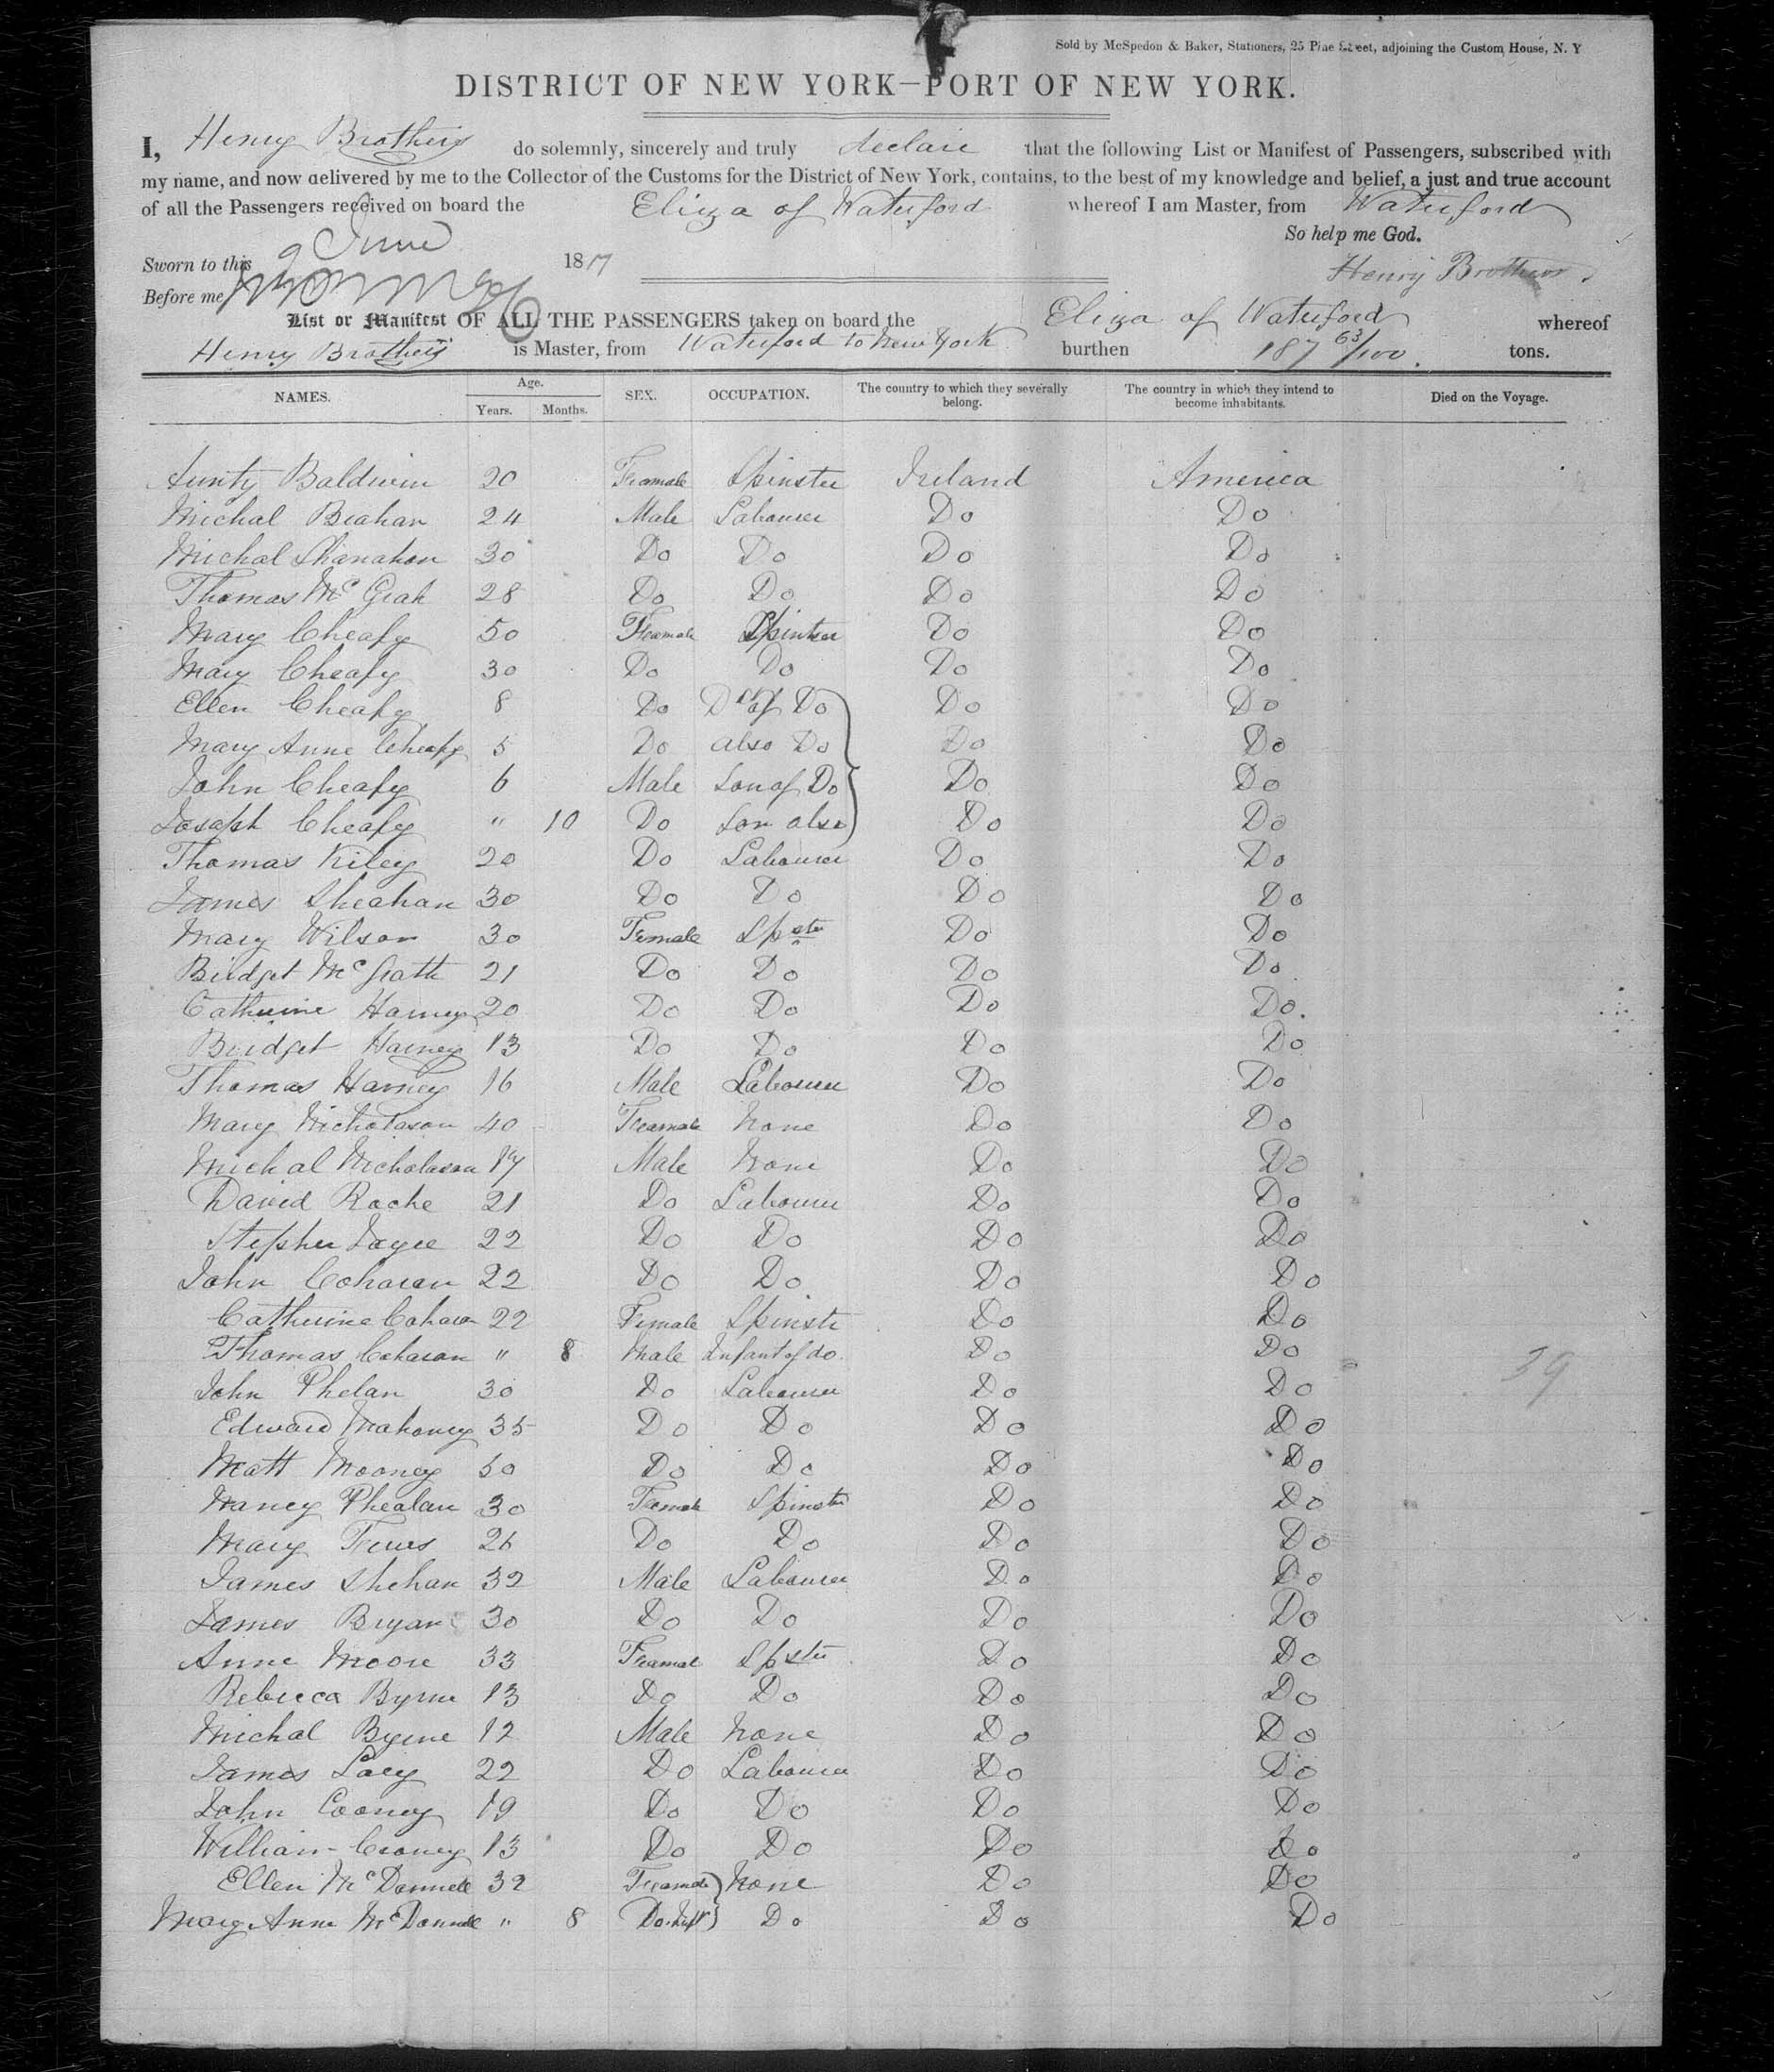 Sold by McSpedon & Baker, Stationers, 25 Pine Street, adjoining the Custom House, N. Y
DISTRICT OF NEW YORK—PORT OF NEW YORK.
I, Henry Brothers do solemnly, sincerely and truly declare that the following List or Manifest of Passengers, subscribed with
my name, and now delivered by me to the Collector of the Customs for the District of New York, contains, to the best of my knowledge and belief, a just and true account
of all the Passengers received on board the Eliza of Waterford whereof I am Master, from Waterford
So help me God.
Sworn to this 9 June 18
Henry Brothers
Before me
List or Manifest OF ALL THE PASSENGERS taken on board the Eliza of Waterford whereof
Henry Brothers is Master, from Waterford to New York burthen 187 63/100 tons.
NAMES. Age. Years. Months. SEX. OCCUPATION. The country to which they severally belong. The country in which they intend to become inhabitants. Died on the Voyage.
Aunty Baldwin 20 Feamale Spinster Ireland America
Michal Beahan 24 Male Labourer Do Do
Michal Shanahan 30 Do Do Do Do
Thomas Mc Grah 28 Do Do Do Do
Mary Cheafy 50 Feamale Spintser Do Do
Mary Cheafy 30 Do Do Do Do
Ellen Cheafy 8 Do Dr of Do Do Do
Mary Anne Cheafy 5 Do also Do Do Do
John Cheafy 6 Male Son of Do Do Do
Josapt Cheafy " 10 Do Son also Do Do
Thomas Kiley 20 Do Labourer Do Do
James Sheahan 30 Do Do Do Do
Mary Wilson 30 Female Spster Do Do
Bridget Mc Grath 21 Do Do Do Do
Catherine Harney 20 Do Do Do Do.
Bridget Harney 13 Do Do Do Do
Thomas Harney 16 Male Labourer Do Do
Mary Nicholason 40 Feamale None Do Do
Michal Nicholason 17 Male None Do Do
David Roche 21 Do Labourer Do Do
Stephen Joyce 22 Do Do Do Do
John Cohoran 22 Do Do Do Do
Catherine 22 Female Spinster Do Do
Thomas Cohoran " 8 Male Infant of do. Do Do
John Phelan 30 Do Labourer Do Do
39
Edward Mahoney 35 Do Do Do Do
Matt Mooney 50 Do Do Do Do
Nancy Phealan 30 Feamale Spinster Do Do
Mary Fews 26 Do Do Do Do
James Shehan 32 Male Labourer Do Do
James Bryan 30 Do Do Do Do
Anne Moore 33 Feamale Spster Do Do
Rebecca Byrne 13 Do Do Do Do
Michal Byrne 12 Male None Do Do
James Lacy 22 Do Labourer Do Do
John Cooney 19 Do Do Do Do
William Cooney 13 Do Do Do Do
Ellen Mc Donnell 32 Feamale None Do Do
Mary Anne Mc Donnell " 8 Do. Do Do Do